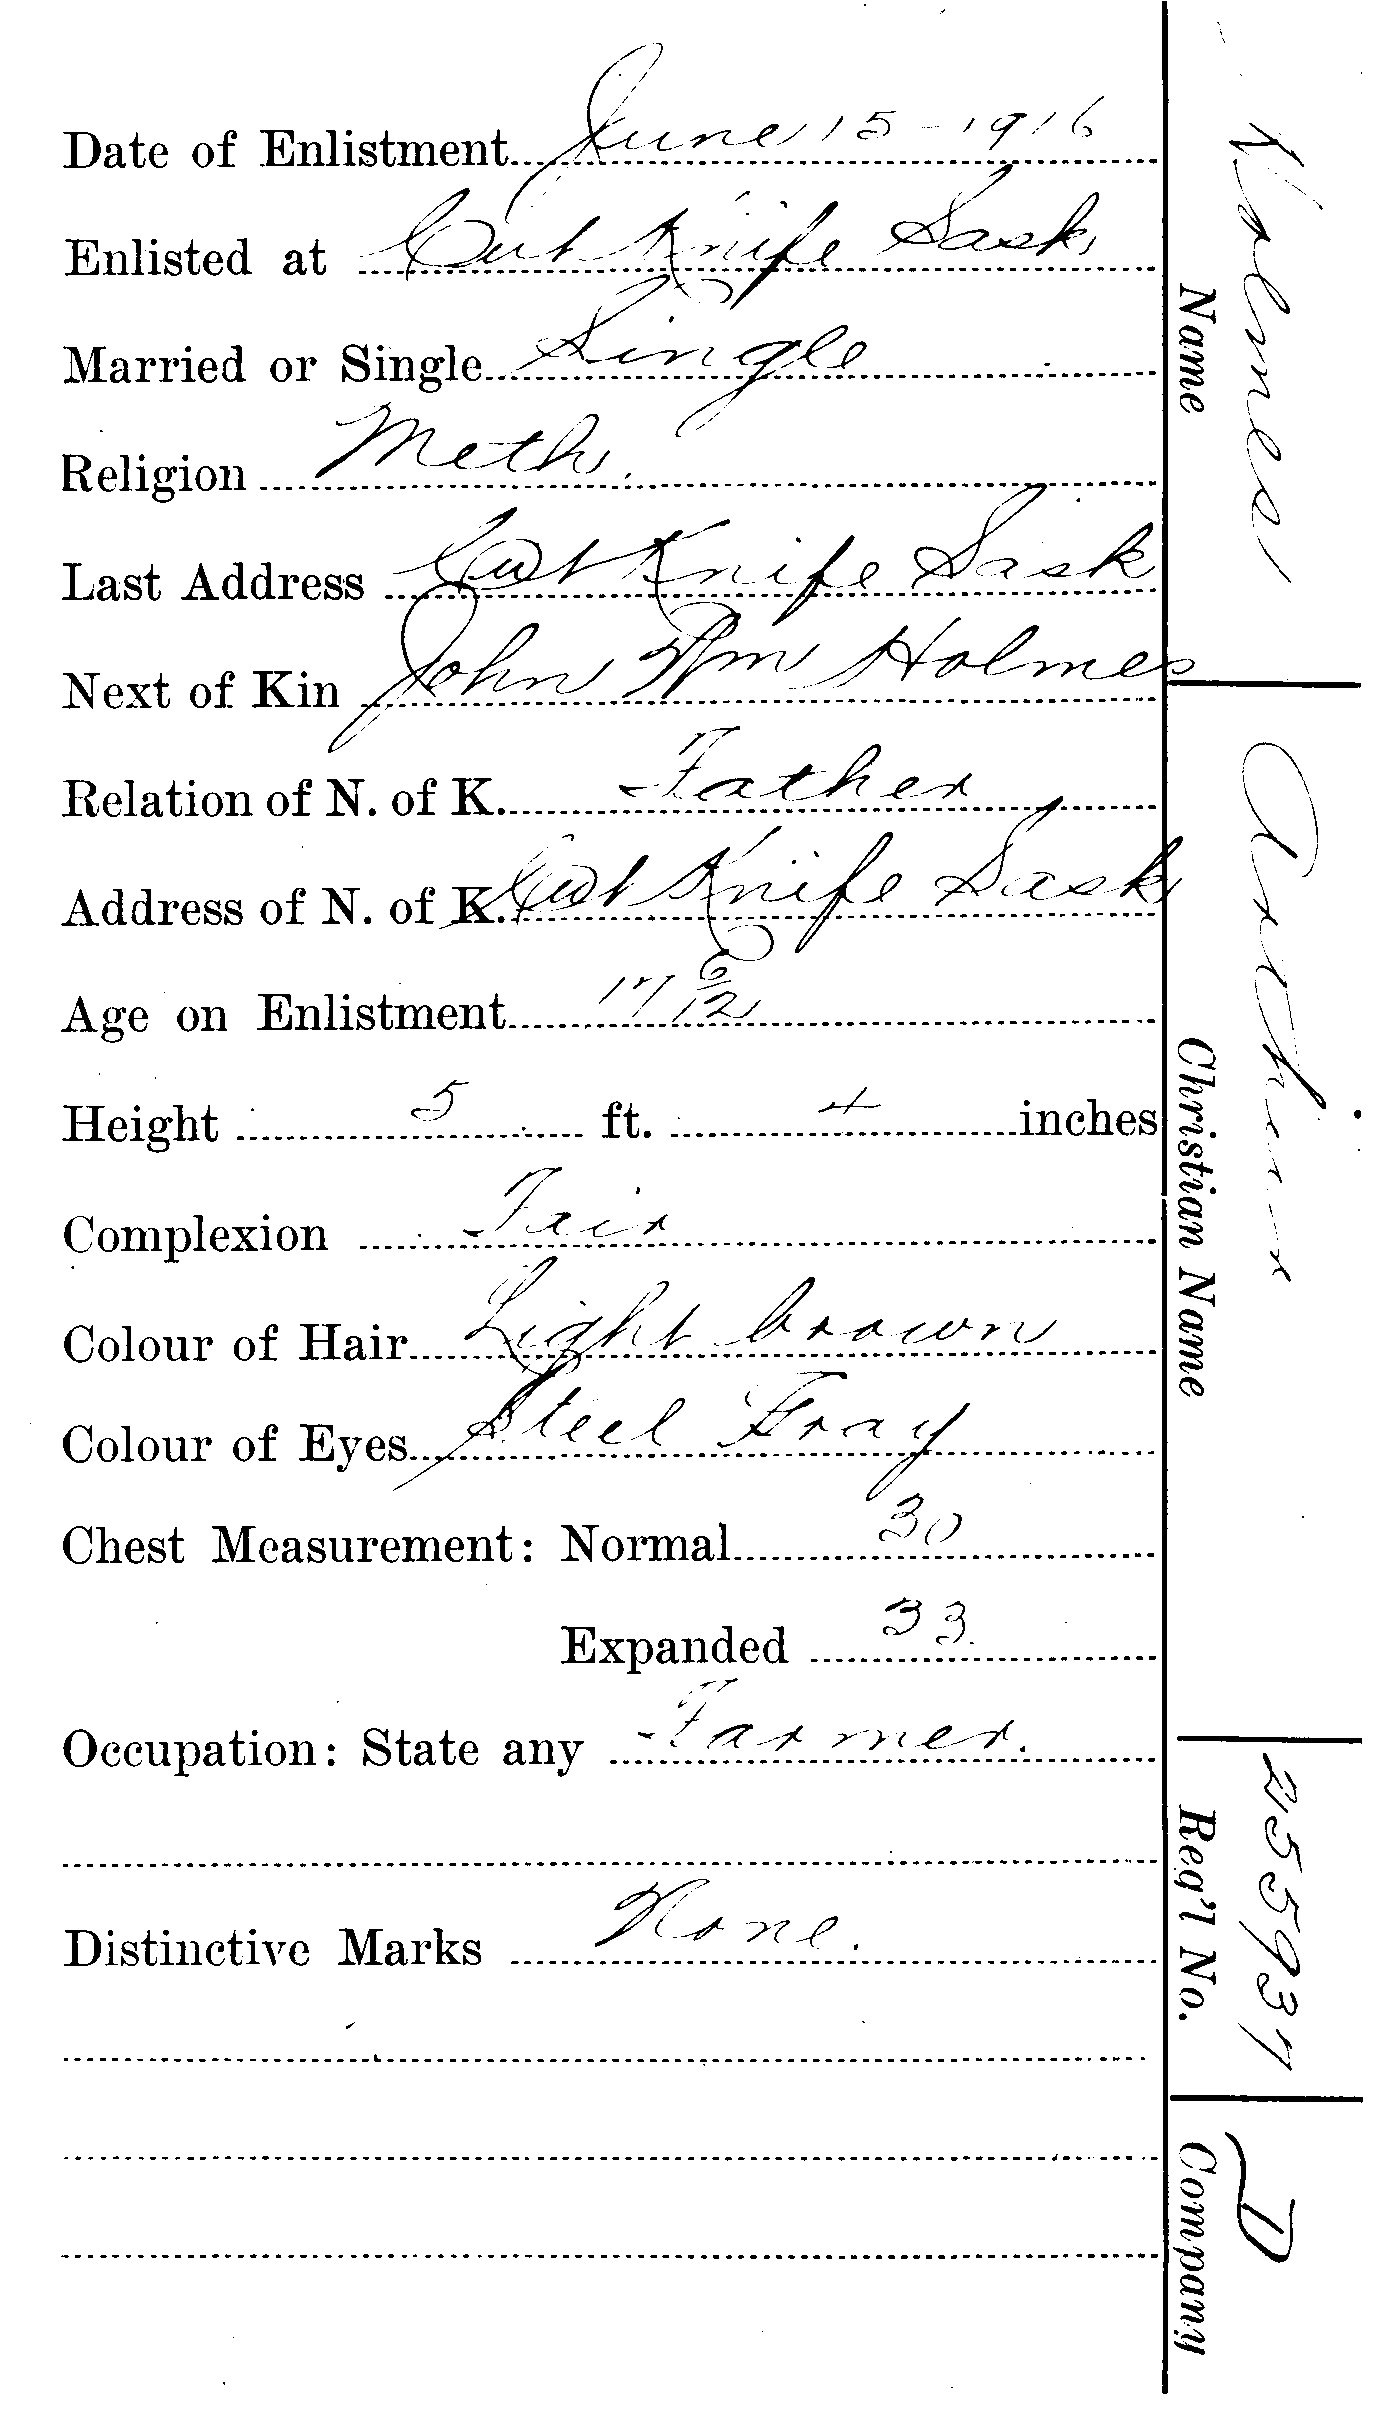 Date of Enlistment June 15 - 1916
Enlisted at Cut Knife Sask
Married or Single Single
Religion Meth.
Last Address Cut Knife Sask
Next of Kin John Wm Holmes
Relation of N. of K. Father
Address of N. of K. Cut Knife Sask
Age on Enlistment 17 6/12
Height 5 ft. 4 inches
Complexion Fair
Colour of Hair Light brown
Colour of Eyes Steel Gray
Chest Measurement: Normal 30
Expanded 33
Occupation: State any Farmer.
Distinctive Marks None.
Holmes
Name
Arthur
Christian Name
255937
Reg'l No.
D
Company